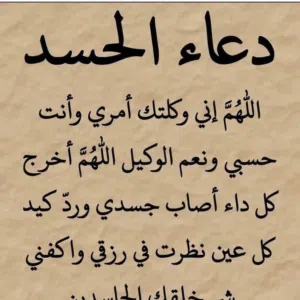 دعاء الحسد
اللهُمَّ إني وكلتك أمري وأنت
حسبي ونعم الوكيل اللهُمَّ أخرج
كل داء أصاب جسدي وردّ كيد
كل عين نظرت في رزقي واكفني
شر خلقك الحاسدين